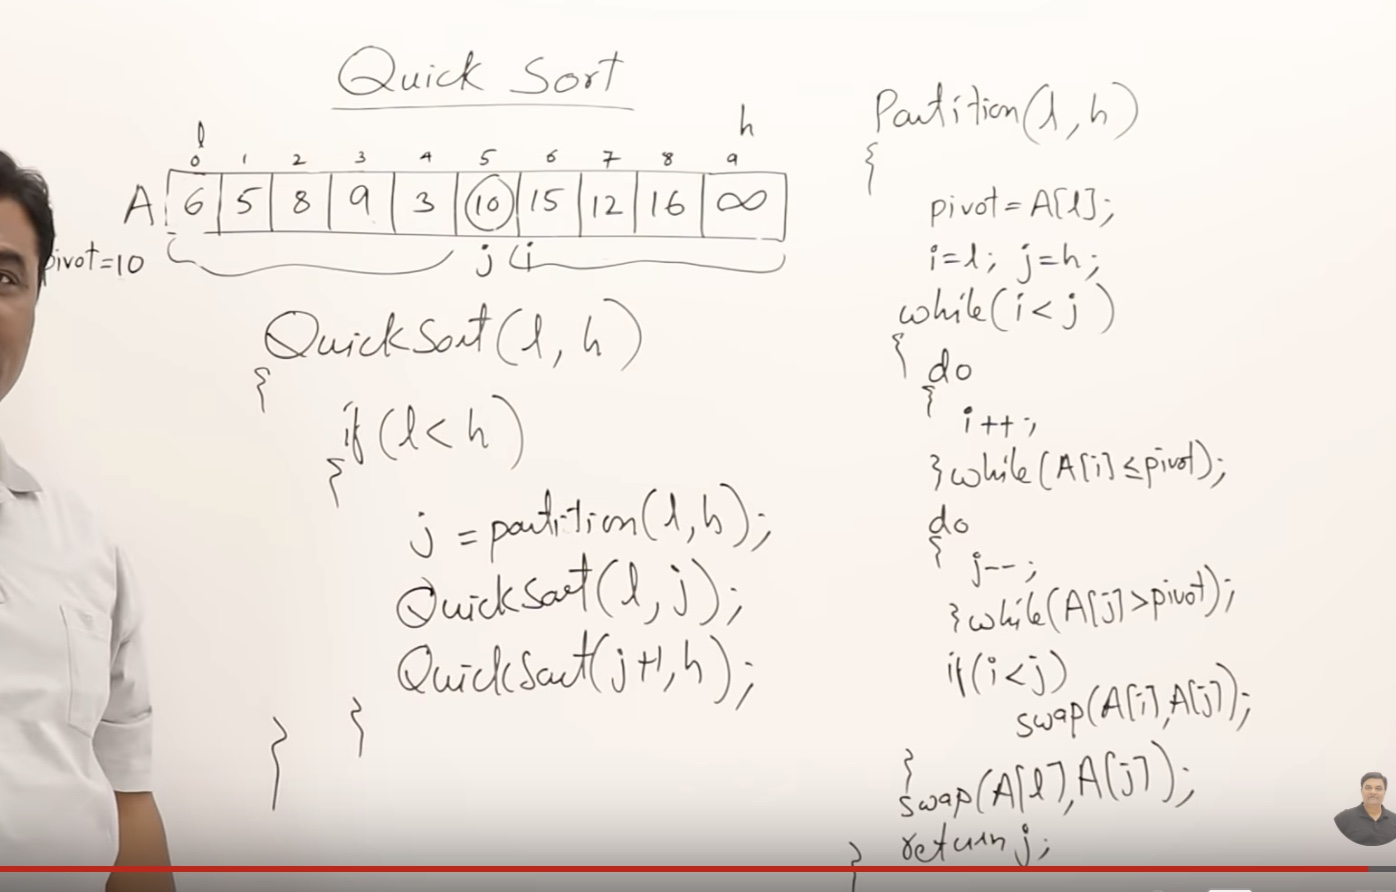 Quick Sort
l h
0 1 2 3 4 5 6 7 8 9
A 6 5 8 9 3 10 15 12 16 ∞
pivot=10 j i
QuickSort(l, h)
{
if(l<h)
{
j =partition(l,h);
QuickSort(l,j);
QuickSort(j+1,h);
}
}
Partition(l,h)
{
pivot=A[l];
i=l; j=h;
while(i<j)
{ do
{
i++;
}while(A[i]≤pivot);
do
{
j--;
}while(A[j]>pivot);
if(i<j)
swap(A[i],A[j]);
}
swap(A[l],A[j]);
return j;
}